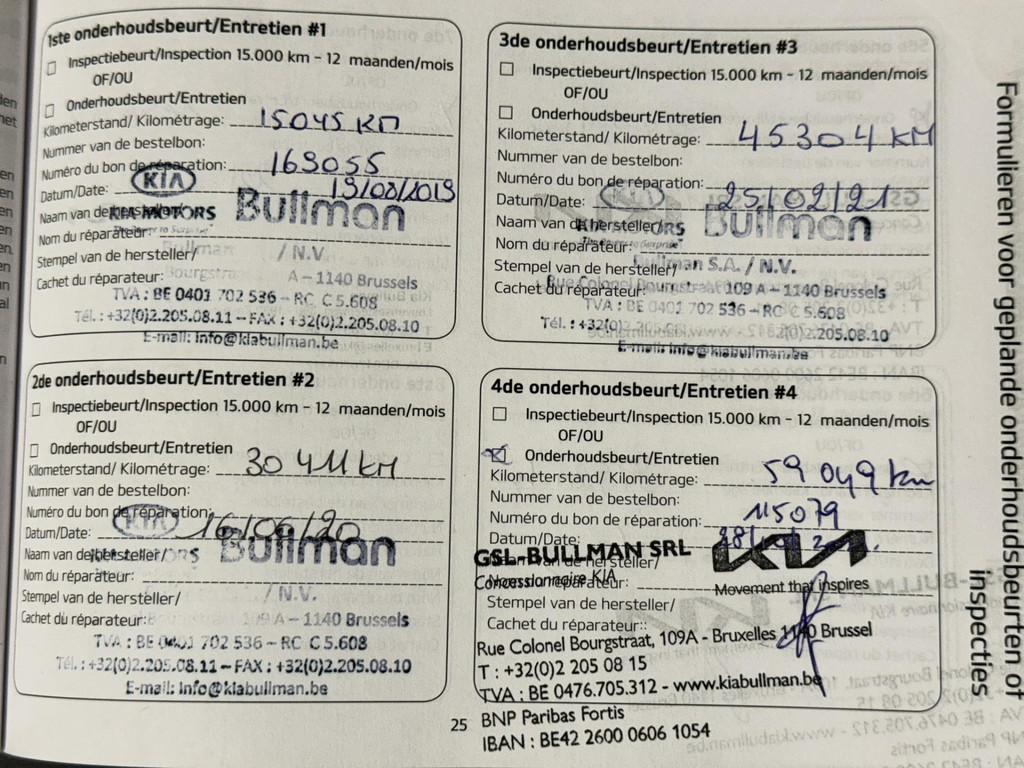 1ste onderhoudsbeurt/Entretien #1
Inspectiebeurt/Inspection 15.000 km - 12 maanden/mois
OF/OU
Onderhoudsbeurt/Entretien
Kilometerstand/ Kilométrage: 15045 KM
Nummer van de bestelbon:
Numéro du bon de réparation: 169055
Datum/Date: 13/08/2019
KIA
Naam van de hersteller/
KIA MOTORS Bullman
Nom du réparateur:
Stempel van de hersteller/ / N.V.
Cachet du réparateur: A - 1140 Brussels
TVA : BE 0401 702 536 - RC C 5.608
Tél. : +32(0)2.205.08.11 - FAX : +32(0)2.205.08.10
E-mail: info@kiabullman.be
2de onderhoudsbeurt/Entretien #2
Inspectiebeurt/Inspection 15.000 km - 12 maanden/mois
OF/OU
Onderhoudsbeurt/Entretien
Kilometerstand/ Kilométrage: 30411 KM
Nummer van de bestelbon:
Numéro du bon de réparation:
KIA
Datum/Date: 16/06/20
Naam van de hersteller/ Bullman
Nom du réparateur:
Stempel van de hersteller/ / N.V.
Cachet du réparateur: 109 A - 1140 Brussels
TVA : BE 0401 702 536 - RC C 5.608
Tél. : +32(0)2.205.08.11 - FAX : +32(0)2.205.08.10
E-mail: info@kiabullman.be
3de onderhoudsbeurt/Entretien #3
Inspectiebeurt/Inspection 15.000 km - 12 maanden/mois
OF/OU
Onderhoudsbeurt/Entretien
Kilometerstand/ Kilométrage: 45304 KM
Nummer van de bestelbon:
Numéro du bon de réparation:
Datum/Date: 25/02/21
Naam van de hersteller/ Bullman
Nom du réparateur:
Stempel van de hersteller/ Bullman S.A. / N.V.
Cachet du réparateur: Rue Colonel Bourgstraat 109 A - 1140 Brussels
TVA : BE 0401 702 536 - RC C 5.608
Tél. : +32(0) 2.205.08.10
E-mail: info@kiabullman.be
4de onderhoudsbeurt/Entretien #4
Inspectiebeurt/Inspection 15.000 km - 12 maanden/mois
OF/OU
Onderhoudsbeurt/Entretien
Kilometerstand/ Kilométrage: 59049 km
Nummer van de bestelbon:
Numéro du bon de réparation: 115079
Datum/Date:
GSL-BULLMAN SRL KIA
Naam van de hersteller/
Concessionnaire KIA
Nom du réparateur: Movement that inspires
Stempel van de hersteller/
Cachet du réparateur::
Rue Colonel Bourgstraat, 109A - Bruxelles 1140 Brussel
T : +32(0)2 205 08 15
TVA : BE 0476.705.312 - www.kiabullman.be
BNP Paribas Fortis
IBAN : BE42 2600 0606 1054
25
Formulieren voor geplande onderhoudsbeurten of
inspecties